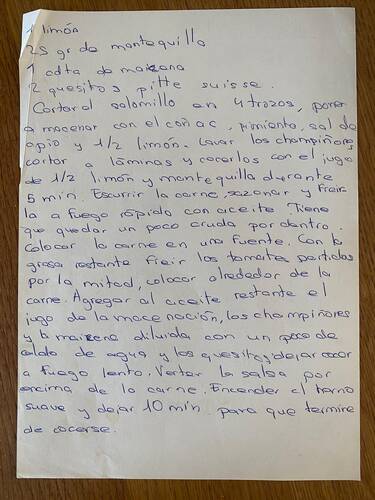 1 limón
25 gr de mantequilla
1 cdta de maizena
2 quesitos pitte suisse.
Cortar el solomillo en 4 trozos, poner
a macenar con el coñac, pimienta, sal de
apio y 1/2 limón. Lavar los champiñones
cortar a láminas y cocerlos con el jugo
de 1/2 limón y mantequilla durante
5 min. Escurrir la carne, sazonar y freir
la a fuego rápido con aceite. Tiene
que quedar un poco cruda por dentro.
Colocar la carne en una fuente. Con la
grasa restante freir los tomates partidos
por la mitad, colocar alrededor de la
carne. Agregar al aceite restante el
jugo de la macenación, los champiñones
y la maizena diluida con un poco de
caldo de agua y los quesitos, dejar cocer
a fuego lento. Verter la salsa por
encima de la carne. Encender el horno
suave y dejar 10 min para que termine
de cocerse.